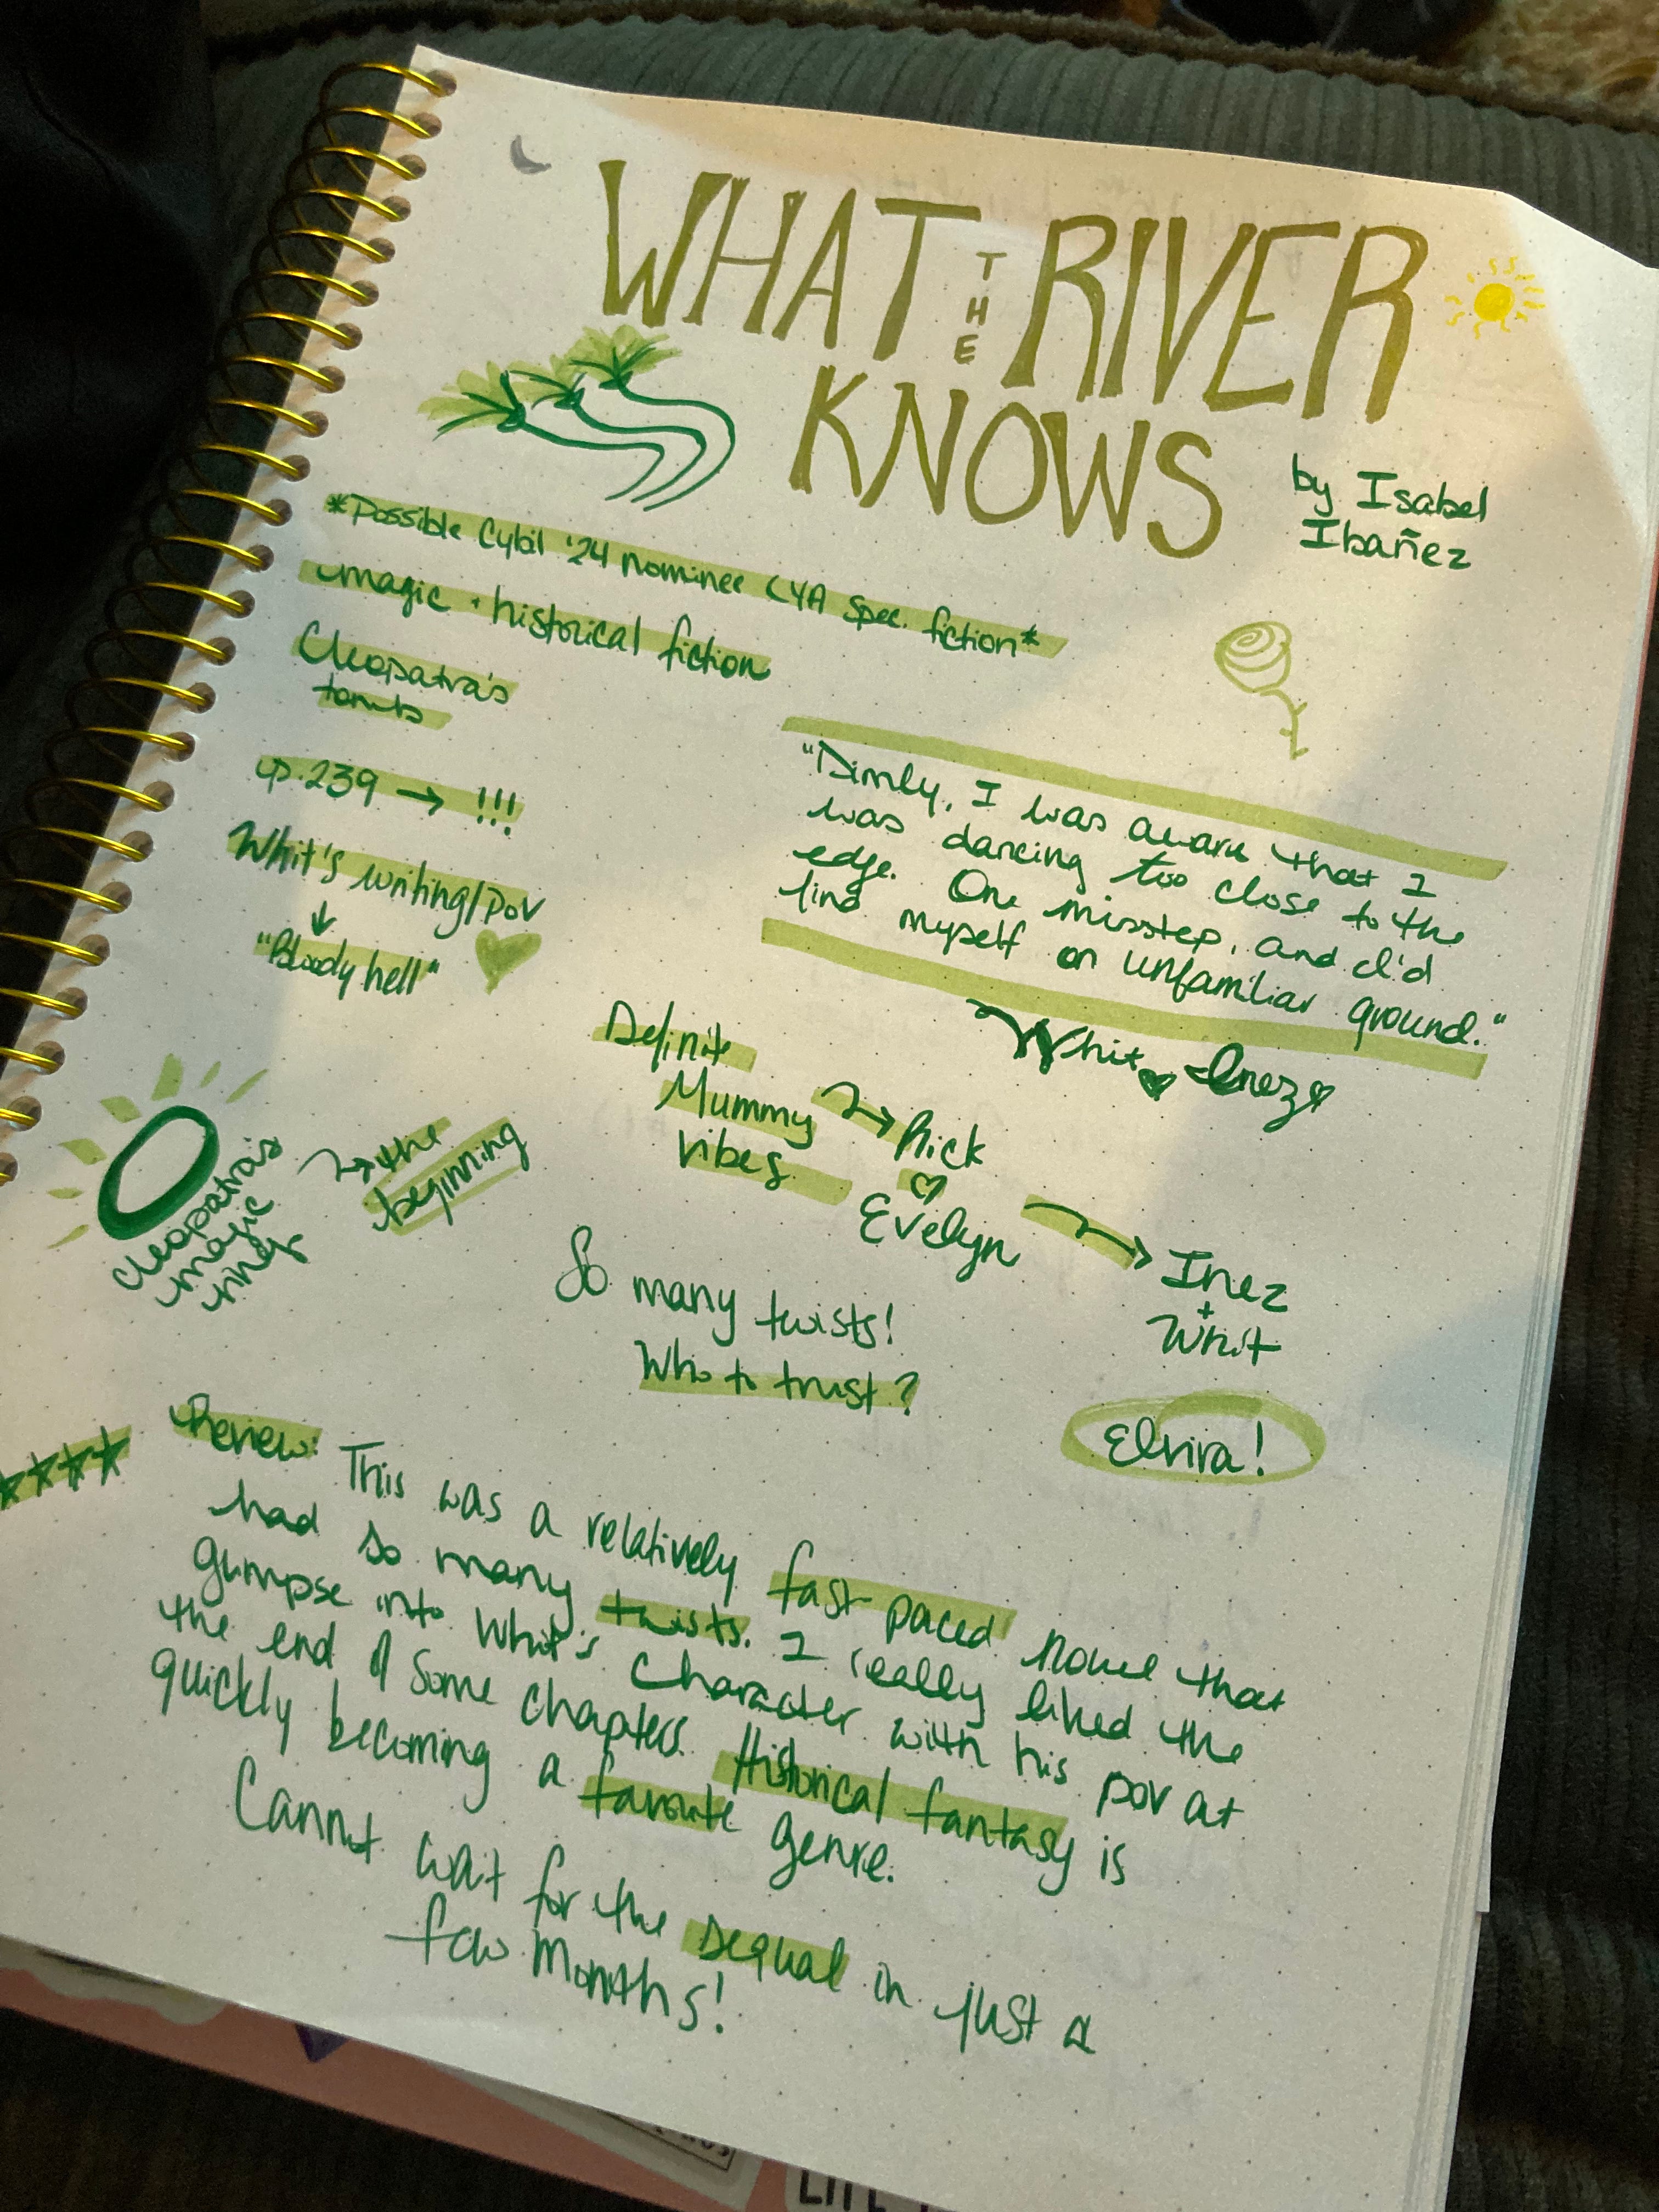 WHAT THE RIVER
KNOWS
by Isabel
Ibañez
*Possible Cybil '24 nominee (YA spec. fiction*
magic + historical fiction
Cleopatra's
tomb
p. 239 → !!!
Whit's writing/POV
↓
"Bloody hell"
"Dimly, I was aware that I
was dancing too close to the
edge. One misstep, and I'd
find myself on unfamiliar ground."
Whit Inez
Definite
Mummy
vibes
Rick
Evelyn
Inez
+
Whit
Cleopatra's
magic
ring
→ the
beginning
So many twists!
Who to trust?
Elvira!
Review: This was a relatively fast paced novel that
had so many twists. I really liked the
glimpse into Whit's character with his pov at
the end of some chapters. Historical fantasy is
quickly becoming a favorite genre.
Cannot wait for the sequal in just a
few months!
LIFE